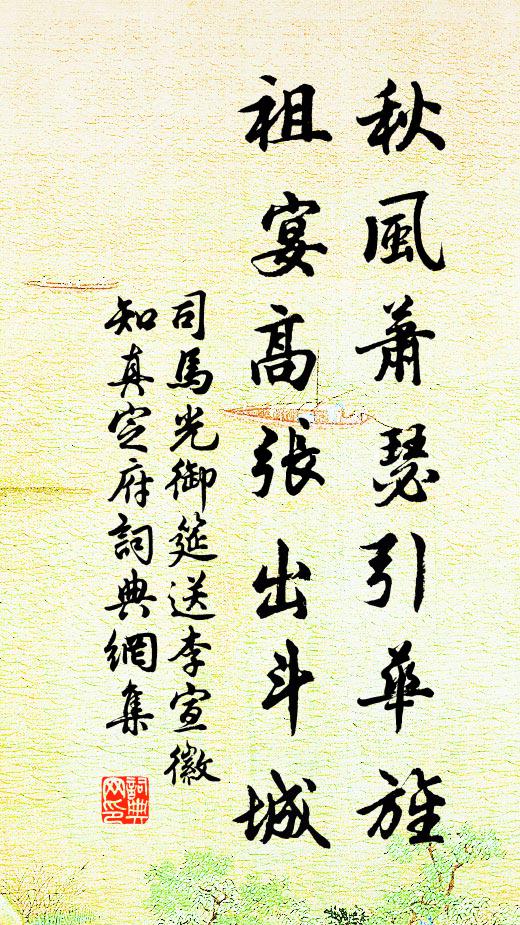 秋風蕭瑟引華旌
祖宴高張出斗城
司馬光御筵送李宣徽
知真定府詞典網集
詞典网印